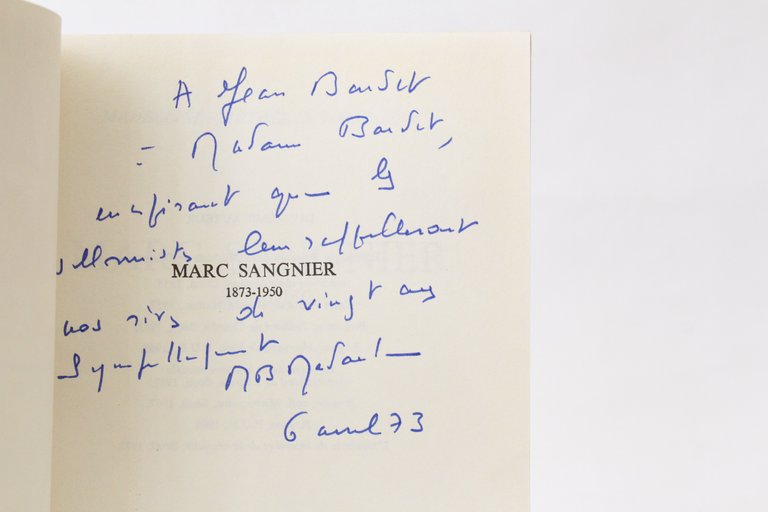 A Jean Bardet
= Madame Bardet,
en espérant que les
sillonnistes leur rappelleront
MARC SANGNIER
1873-1950
nos rires de vingt ans
Sympathiquement
MB Madaule
6 avril 73